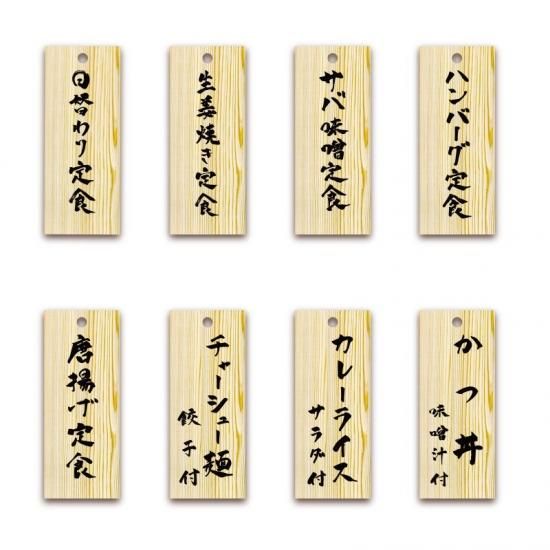 日替わり定食
生姜焼き定食
サバ味噌定食
ハンバーグ定食
唐揚げ定食
チャーシュー麺
餃子付
カレーライス
サラダ付
かつ丼
味噌汁付